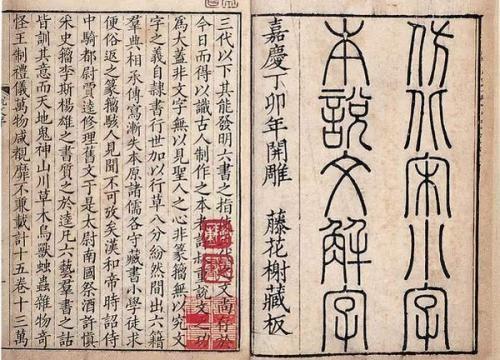 仿北宋小字
本說文解字
嘉慶丁卯年開雕 藤花榭藏板
三代以下其能發明六書之指之文尚存於
今日而得以識古人制作之本者重說文之功
爲大蓋非文字無以見聖人之心非篆籀無以究文
字之義自隸書行世加以行草八分紛然間出六籍
羣典相承傳寫漸失本原諸儒各守書小學徒求
便俗返之篆籀駭人見聞不可攷矣漢和帝時詔侍
中騎都尉賈逵修理舊文于是太尉南國祭酒許慎
朱史籀李斯楊雄之書質之於逵凡六藝羣書之詁
皆訓其意而天地鬼神山川草木鳥獸蟲雜物奇
怪王制禮儀萬物咸覩靡不兼載計十五卷十三萬